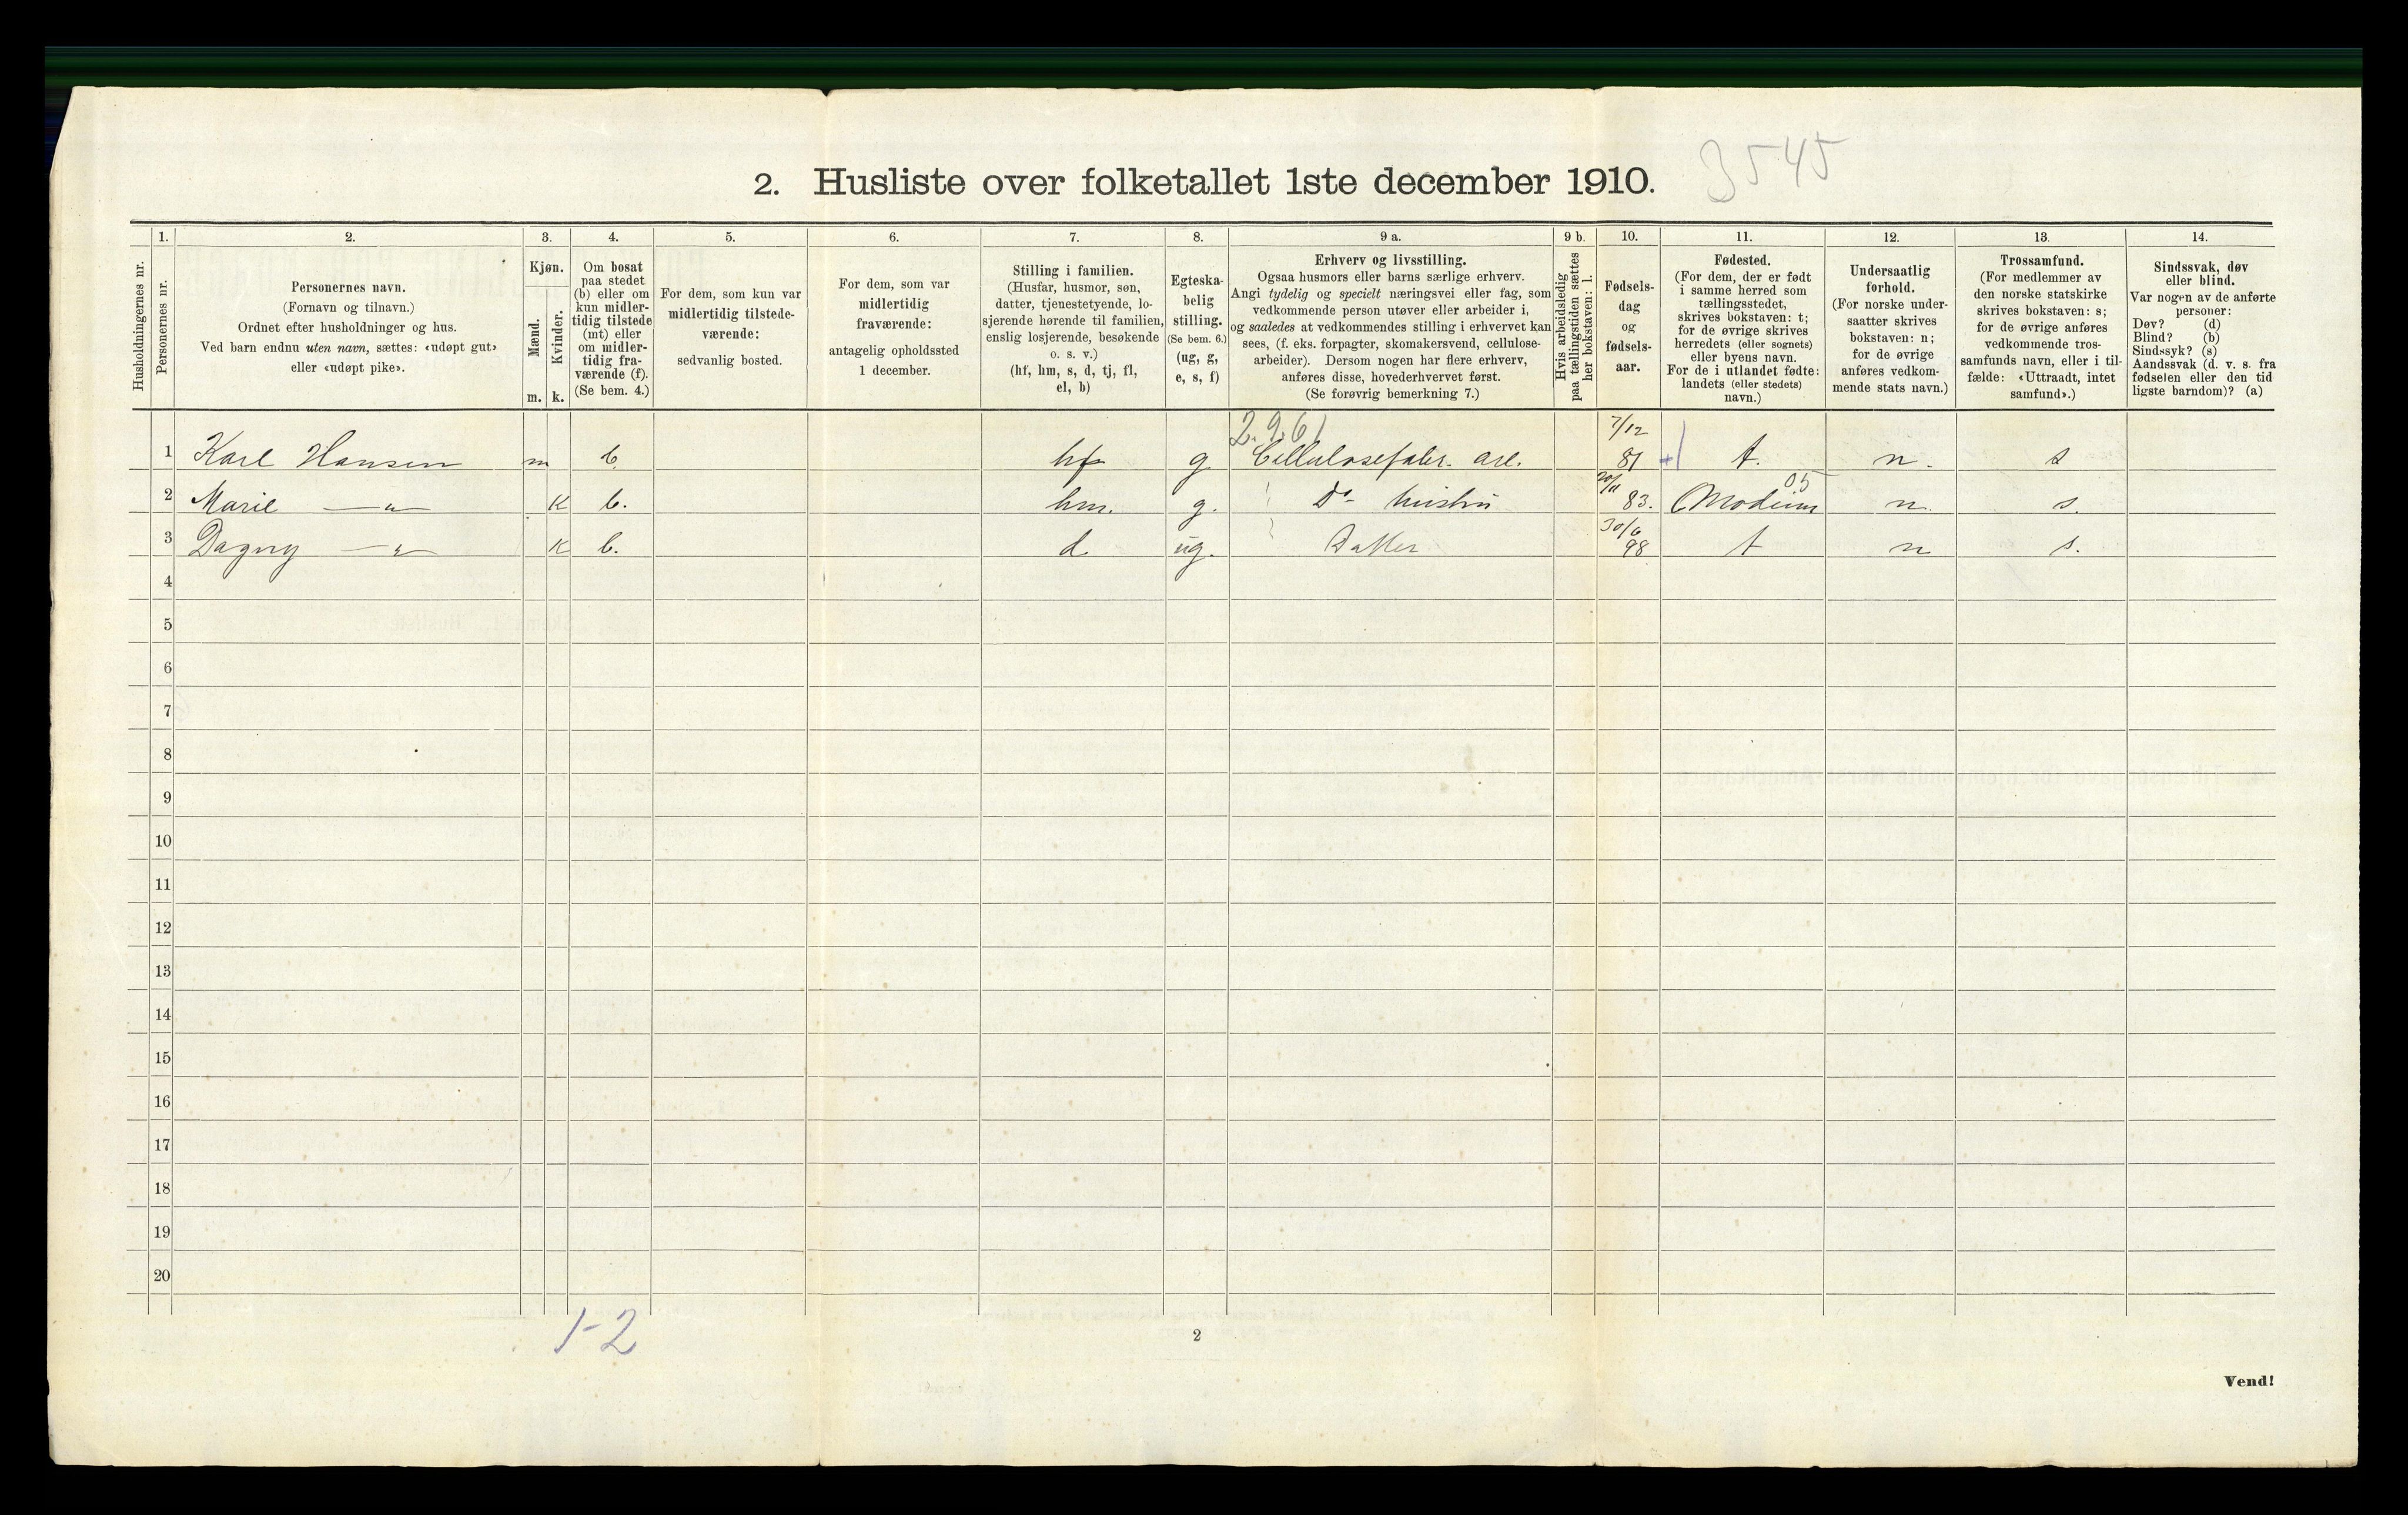 3545
2. Husliste over folketallet 1ste december 1910.
Husholdningernes nr.
1.
Personernes nr.
2.
Personernes navn.
(Fornavn og tilnavn.)
Ordnet efter husholdninger og hus.
Ved barn endnu uten navn, sættes: «udøpt gut»
eller «udøpt pike».
3.
Kjøn.
Mænd.
Kvinder.
m. k.
4.
Om bosat
paa stedet
(b) eller om
kun midler-
tidig tilstede
(mt) eller
om midler-
tidig fra-
værende (f).
(Se bem. 4.)
5.
For dem, som kun var
midlertidig tilstede-
værende:
sedvanlig bosted.
6.
For dem, som var
midlertidig
fraværende:
antagelig opholdssted
1 december.
7.
Stilling i familien.
(Husfar, husmor, søn,
datter, tjenestetyende, lo-
sjerende hørende til familien,
enslig losjerende, besøkende
o. s. v.)
(hf, hm, s, d, tj, fl,
el, b)
8.
Egteska-
belig
stilling.
(Se bem. 6.)
(ug, g,
e, s, f)
9 a.
Erhverv og livsstilling.
Ogsaa husmors eller barns særlige erhverv.
Angi tydelig og specielt næringsvei eller fag, som
vedkommende person utøver eller arbeider i,
og saaledes at vedkommendes stilling i erhvervet kan
sees, (f. eks. forpagter, skomakersvend, cellulose-
arbeider). Dersom nogen har flere erhverv,
anføres disse, hovederhvervet først.
(Se forøvrig bemerkning 7.)
9 b.
Hvis arbeidsledig
paa tællingstiden sættes
her bokstaven: l.
10.
Fødsels-
dag
og
fødsels-
aar.
11.
Fødested.
(For dem, der er født
i samme herred som
tællingsstedet,
skrives bokstaven: t;
for de øvrige skrives
herredets (eller sognets)
eller byens navn.
For de i utlandet fødte:
landets (eller stedets)
navn.)
12.
Undersaatlig
forhold.
(For norske under-
saatter skrives
bokstaven: n;
for de øvrige
anføres vedkom-
mende stats navn.)
13.
Trossamfund.
(For medlemmer av
den norske statskirke
skrives bokstaven: s;
for de øvrige anføres
vedkommende tros-
samfunds navn, eller i til-
fælde: «Uttraadt, intet
samfund».)
14.
Sindssvak, døv
eller blind.
Var nogen av de anførte
personer:
Døv? (d)
Blind? (b)
Sindssyk? (s)
Aandssvak (d. v. s. fra
fødselen eller den tid
ligste barndom)? (a)
2.9.61 7/12
1 Karl Hansen m b. hf g Cellulosefabr. arb. 81 t. n. s
20/11 05
2 Marie —〃— k b. hm. g. Do hustru 83. Modum n. s.
30/6
3 Dagny —〃— k b. d. ug. Datter 98 t n s.
4
5
6
7
8
9
10
11
12
13
14
15
16
17
18
19
20
1-2
2
Vend!